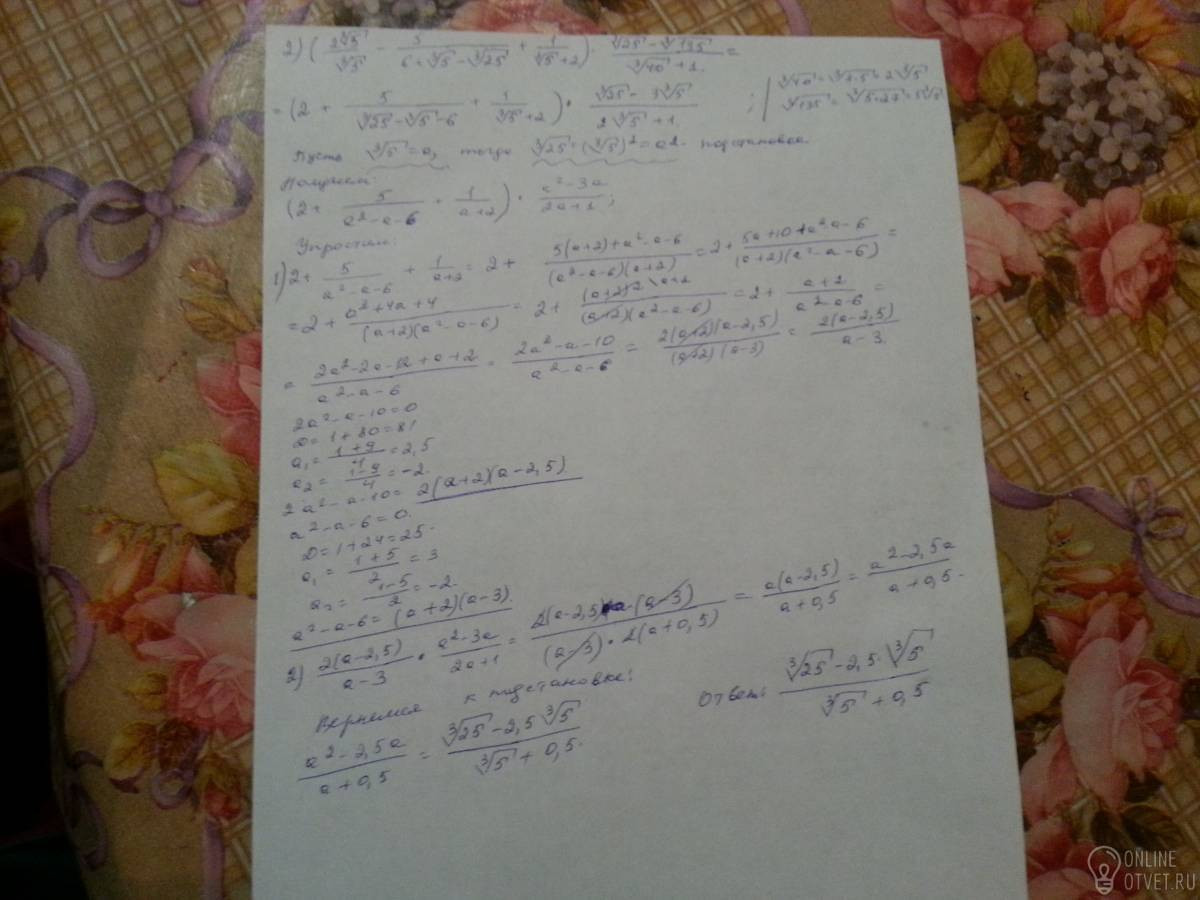 2) (2∛5/∛5 − 5/(6+∛5−∛25) + 1/(∛5+2)) · (∛25−∛135)/(∛40+1) =
= (2 + 5/(∛25−∛5−6) + 1/(∛5+2)) · (∛25−3∛5)/(2∛5+1) ;
Пусть ∛5 = a, тогда ∛25 = (∛5)² = a² - подстановка.
Получаем:
(2 + 5/(a²−a−6) + 1/(a+2)) · (a²−3a)/(2a+1);
Упростим:
1) 2 + 5/(a²−a−6) + 1/(a+2) = 2 + (5(a+2)+a²−a−6)/((a²−a−6)(a+2)) = 2 + (5a+10+a²−a−6)/((a+2)(a²−a−6)) =
= 2 + (a²+4a+4)/((a+2)(a²−a−6)) = 2 + (a+2)²/((a+2)(a²−a−6)) = 2 + (a+2)/(a²−a−6) =
= (2a²−2a−12+a+2)/(a²−a−6) = (2a²−a−10)/(a²−a−6) = (2(a+2)(a−2,5))/((a+2)(a−3)) = (2(a−2,5))/(a−3)
2a²−a−10=0
D=1+80=81
a₁ = (1+9)/4 = 2,5
a₂ = (1−9)/4 = −2.
2a²−a−10 = 2(a+2)(a−2,5)
a²−a−6=0.
D=1+24=25.
a₁ = (1+5)/2 = 3
a₂ = (1−5)/2 = −2.
a²−a−6 = (a+2)(a−3)
2) (2(a−2,5))/(a−3) · (a²−3a)/(2a+1) = (2(a−2,5)·a·(a−3))/((a−3)·2(a+0,5)) = (a(a−2,5))/(a+0,5) = (a²−2,5a)/(a+0,5).
Вернемся к подстановке:
(a²−2,5a)/(a+0,5) = (∛25−2,5∛5)/(∛5+0,5).
Ответ: (∛25−2,5·∛5)/(∛5+0,5)
ONLINE
OTVET.RU